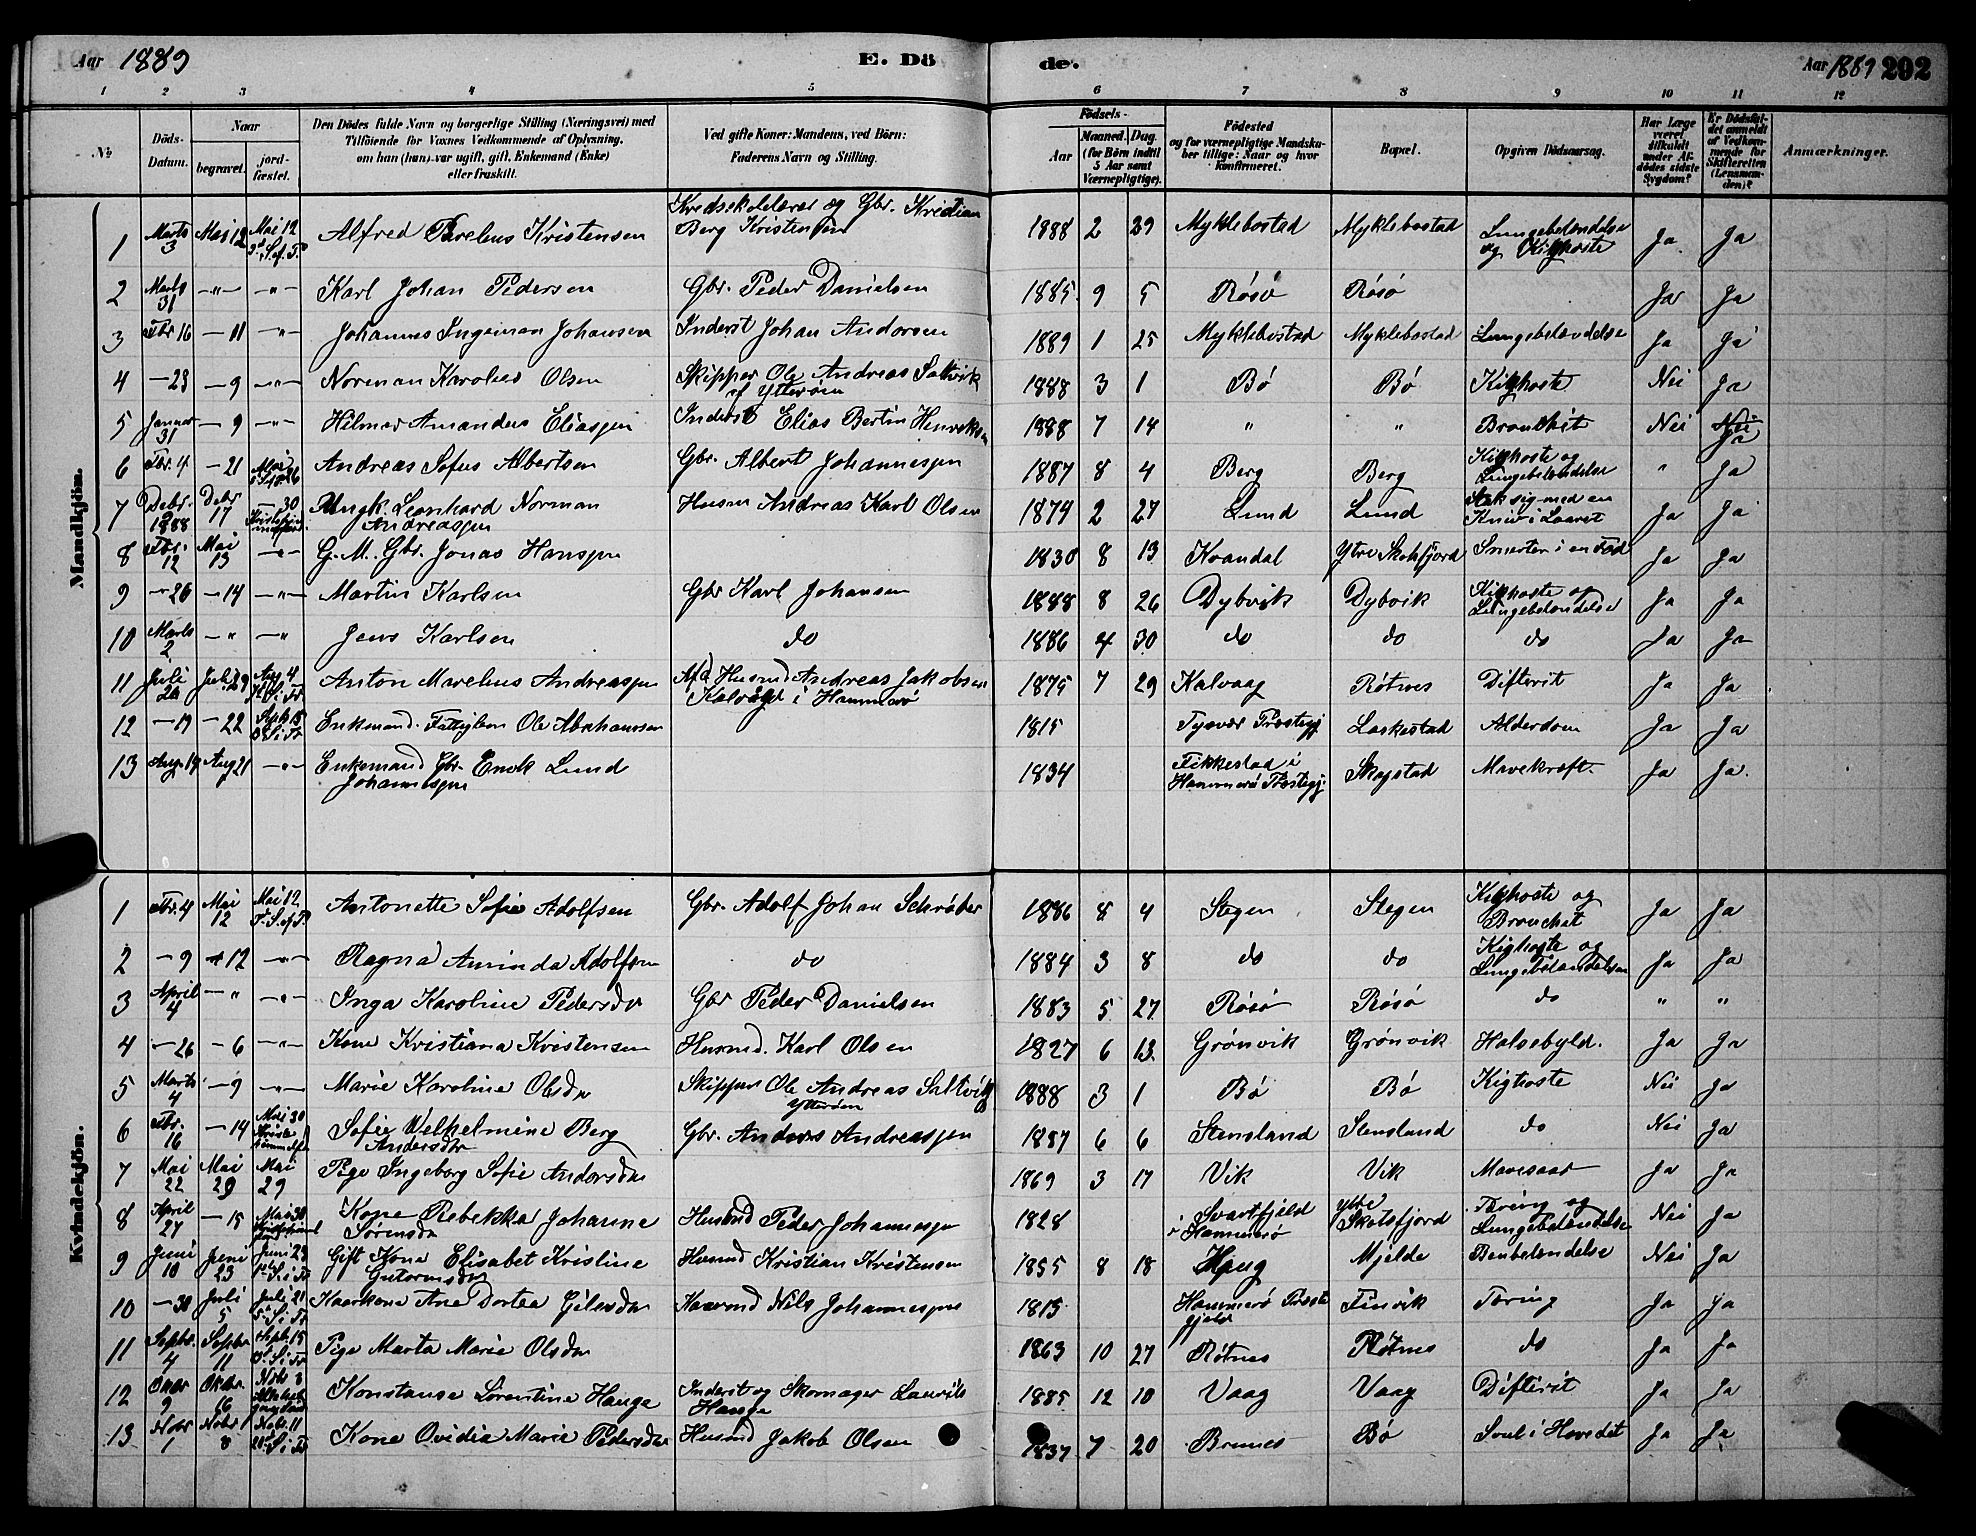 Aar 1889 E. Dö de. Aar 1889 202
1 2 3 4 5 6 7 8 9 10 11 12
№
Döds-
Datum.
Naar
begravet.
jord-
fæstet.
Den Dödes fulde Navn og borgerlige Stilling (Næringsvei) med
Tilföiende for Voxnes Vedkommende af Oplysning,
om han (hun) var ugift, gift, Enkemand (Enke)
eller fraskilt.
Ved gifte Koner: Mandens, ved Börn:
Faderens Navn og Stilling.
Födsels-
Aar
Maaned. Dag.
(for Börn indtil
5 Aar samt
Værnepligtige).
Födested
og for værnepligtige Mandska-
ber tillige: Naar og hvor
konfirmeret.
Bopæl.
Opgiven Dödsaarsag.
Har Læge
været
tilkaldt
under Af-
dödes sidste
Sygdom?
Er Dödsfal-
det anmeldt
af Vedkom-
mende for
Skifteretten
(Lensman-
den)?
Anmærkninger.
Mandkjön.
1 Marts 3 Mai 12 Mai 12 Alfred Parelius Kristensen Kredsskolelærer og Gbr. Kristian Berg Kristensen 1888 2 29 Myklebostad Myklebostad Lungebetændelse og Kighoste Ja Ja
2 Marts 31 —"— —"— Karl Johan Pedersen Gbr. Peder Danielsen 1885 9 5 Røsø Røsø Ja Ja
3 Fbr 16 — 11 —"— Johannes Ingeman Johansen Inderst Johan Andorsen 1889 1 25 Myklebostad Myklebostad Lungebetændelse Ja Ja
4 — 23 — 9 —"— Norman Karolius Olsen Skipper Ole Andreas Saltvik af Ytterøen 1888 3 1 Bø Bø Kighoste Nei Ja
5 Januar 31 — 9 —"— Hilmar Amandus Eliassen Inderst Elias Bertin Henriksen 1888 7 14 " " Bronchit Nei Ja
6 Fbr. 4 — 21 Mai 26 Andreas Sofus Albertsen Gbr. Albert Johannessen 1887 8 4 Berg Berg Kighoste og Lungebetændelse " Ja
7 Debr. 9 1888 Debr 17 — 30 Ungk. Leonhard Norman Andreassen Husm Andreas Karl Olsen 1874 2 27 Lund Lund Stak sig med en Kniv i Laaret Ja Ja
8 Fbr. 12 Mai 13 —"— G. M. Gbr. Jonas Hanssen 1830 8 13 Kvandal Ytre Skotsfjord Smerten i en Fod Ja Ja
9 —"26 — 14 —"— Martin Karlsen Gbr Karl Johansen 1888 8 26 Dybvik Dybvik Kighoste og Lungebetændelse Ja Ja
10 Marts 2 —" —" Jens Karlsen do 1886 4 30 do do do Ja Ja
11 Juli 26 Juli 29 Aug 4 Anton Marelius Andreassen Husmd Andreas Jakobsen i Hammerø 1875 7 29 Kalvaag Røtnes Difterit Ja Ja
12 — 19 — 22 Enkemand. Fattiglem Ole Abrahamsen 1815 Tysvær Præstegj Laskestad Alderdom Ja Ja
13 Aug. 19 Aug 21 —"— Enkemand Gbr. Enok Lund Johannessen 1834 Fikkestad i Hammerø Præstegj. Skogstad Mavekræft. Ja Ja.
Kvindekjön.
1 Fbr. 4 Mai 12 Mai 12. Antonette Sofie Adolfsen Gbr. Adolf Johan Schrøder 1886 8 4 Stegen Stegen Kighoste og Bronchit Ja Ja
2 — 9 — 12 —"— Ragna Aminda Adolfsen do 1884 3 8 do do Kighoste og Lungebetændelsen Ja Ja
3 April 4 —" —"— Inga Karoline Pedersdr Gbr Peder Danielsen 1883 5 27 Røsø Røsø do " "
4 — 26 — 6 —"— Kone Kristiana Kristensen Husmd. Karl Olsen 1827 6 13 Grønvik Grønvik Halsebyld. Ja Ja
5 Marts 4 — 9 —"— Marie Karoline Olsdr Skipper Ole Andreas Saltvig Ytterøen 1888 3 1 Bø Bø Kighoste Nei Ja
6 Fbr. 16 — 14 Mai 30 Sofie Velhelmine Berg Andersdr Gbr. Anders Andreassen 1887 6 6 Stensland Stensland do Nei Ja
7 Mai 22 Mai 29 Mai 29 Pige Ingeborg Sofie Andorsdr 1869 3 17 Vik Vik Mavesaar Ja Ja
8 April 27 — 15 Mai 30 Kone Rebekka Johanna Sørensdr Husmd Peder Johannessen 1828 Svartfjeld i Hammerø Ytre Skotsfjord Tæring og Lungebetændelse Nei Ja
9 Juni 10 Juni 23 Juni 23 Gift Kone Elisabet Kristine Gutormsdr Husmd Kristian Kristensen 1855 8 18 Haug Mjelde Benbetændelse Nei Ja
10 — 30 Juli 5 Juli 21 Kaarkone Ane Dortea Gilesdr Kaarmd Nils Johannessen 1815 Hammerø Præstegjeld Finvik Tæring Ja Ja
11 Septbr. 4 Septbr 11 Septbr. 15 Pige Marta Marie Olsdr 1863 10 27 Røtnes Røtnes do Ja Ja
12 Oktbr 9 Oktbr. 16 Novbr 3 Konstanse Lorentine Hauge Inderst og Skomager Laurits Hauge 1885 12 10 Vaag Vaag Difterit Ja Ja
13 Nobr 1 Nobr 8 Nobr. 11 Kone Ovidia Marie Pedersdr Husmd Jakob Olsen 1837 7 20 Brunes Bø Saal i Hovedet Ja Ja